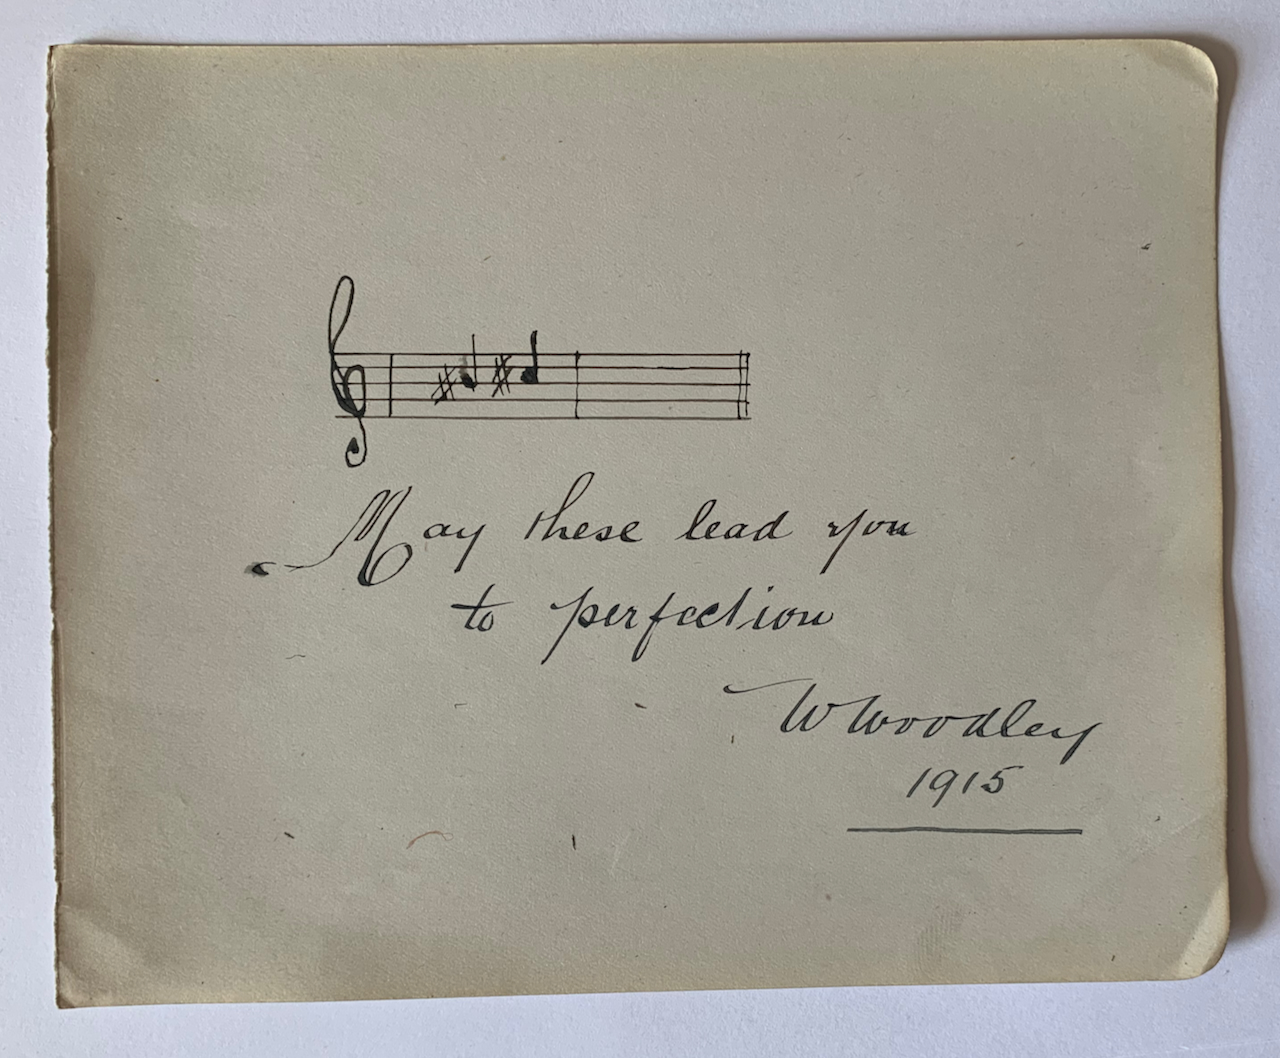 May these lead you
to perfection
W Woodley
1915